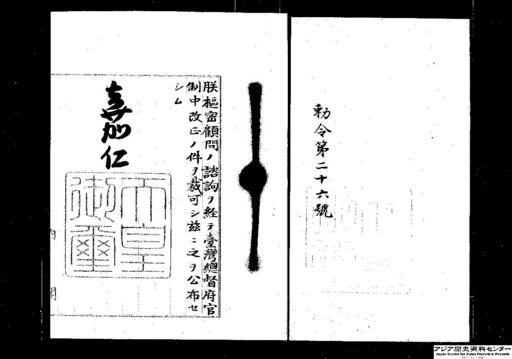 勅令第二十六號
朕樞密顧問ノ諮詢ヲ経テ臺灣總督府官
制中改正ノ件ヲ裁可シ茲ニ之ヲ公布セ
シム
嘉仁
天皇御璽
内閣
アジア歴史資料センター
Japan Center for Asian Historical Records